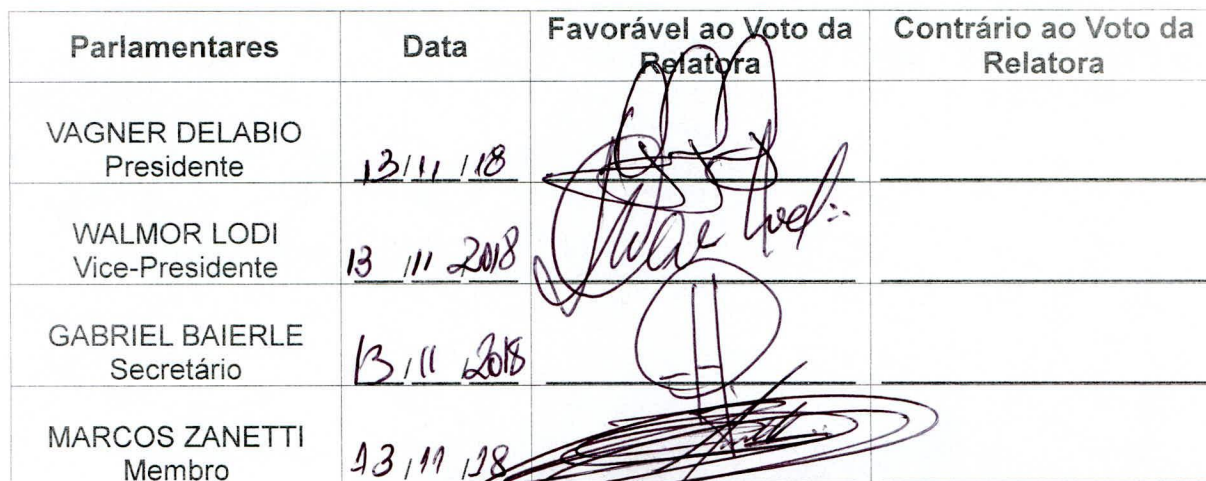 Parlamentares Data Favorável ao Voto da Relatora Contrário ao Voto da Relatora
VAGNER DELABIO
Presidente 13/11/18
WALMOR LODI
Vice-Presidente 13/11/2018
GABRIEL BAIERLE
Secretário 13/11/2018
MARCOS ZANETTI
Membro 13/11/18